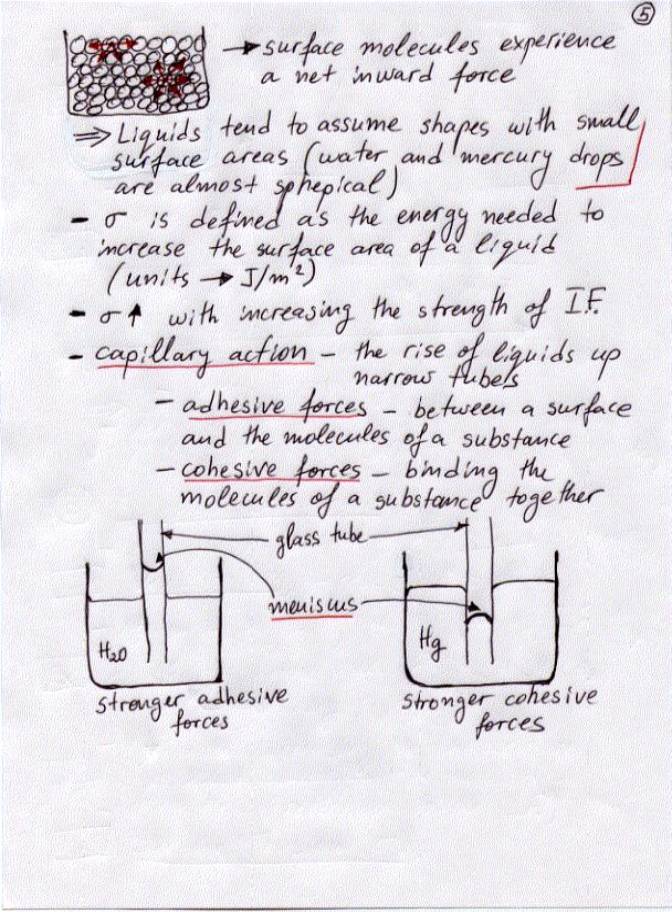 5
→ surface molecules experience
a net inward force
⇒ Liquids tend to assume shapes with small
surface areas (water and mercury drops
are almost sphepical)
- σ is defined as the energy needed to
increase the surface area of a liquid
(units → J/m²)
- σ↑ with increasing the strength of I.F.
- capillary action - the rise of liquids up
narrow tubels
- adhesive forces - between a surface
and the molecules of a substance
- cohesive forces - binding the
molecules of a substance together
glass tube
meniscus
H₂O
Hg
Stronger adhesive
forces
Stronger cohesive
forces